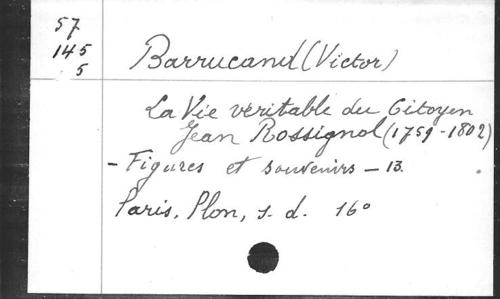 57
145
5
Barrucand (Victor)
La Vie véritable du Citoyen
Jean Rossignol (1759-1802)
- Figures et souvenirs - 13.
Paris, Plon, s. d. 16°